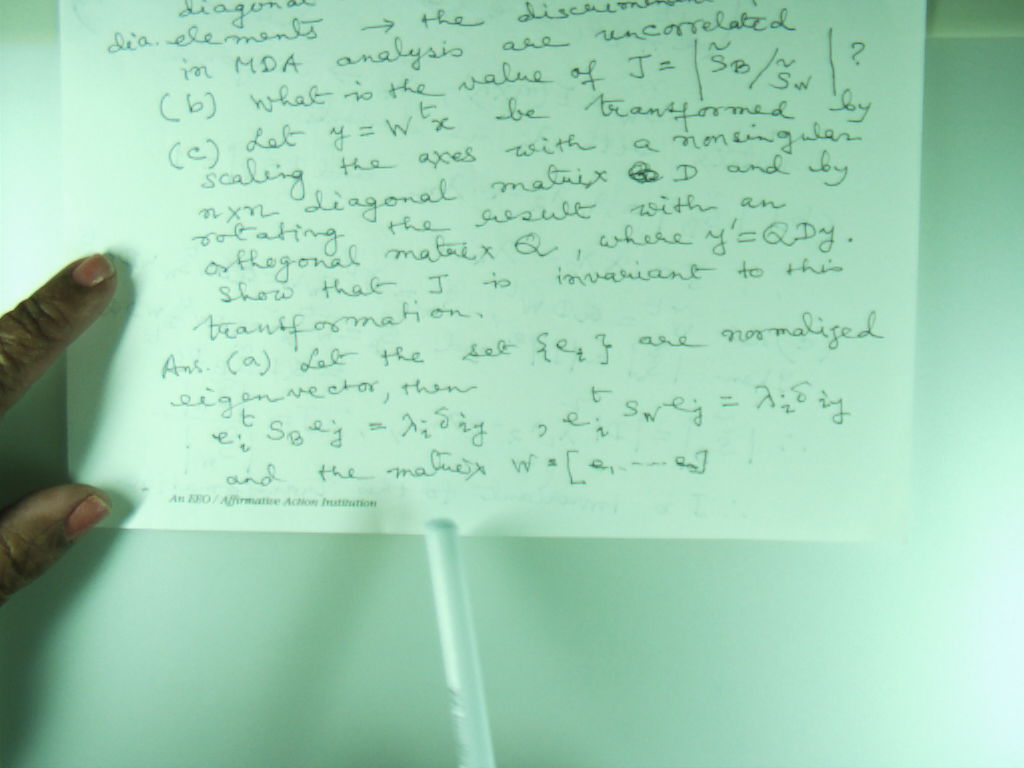 diagonal
dia. elements → the
in MDA analysis are uncorrelated
(b) What is the value of J = | S̃_B / S̃_W | ?
(c) Let y = W^t x be transformed by
scaling the axes with a nonsingular
n×n diagonal matrix D and by
rotating the result with an
orthogonal matrix Q, where y' = QDy.
Show that J is invariant to this
transformation.
Ans. (a) Let the set {e_i} are normalized
eigen vector, then
e_i^t S_B e_j = λ_i δ_ij , e_i^t S_W e_j = λ_i δ_ij
and the matrix W = [e_1 ---- e_n]
An EEO / Affirmative Action Institution